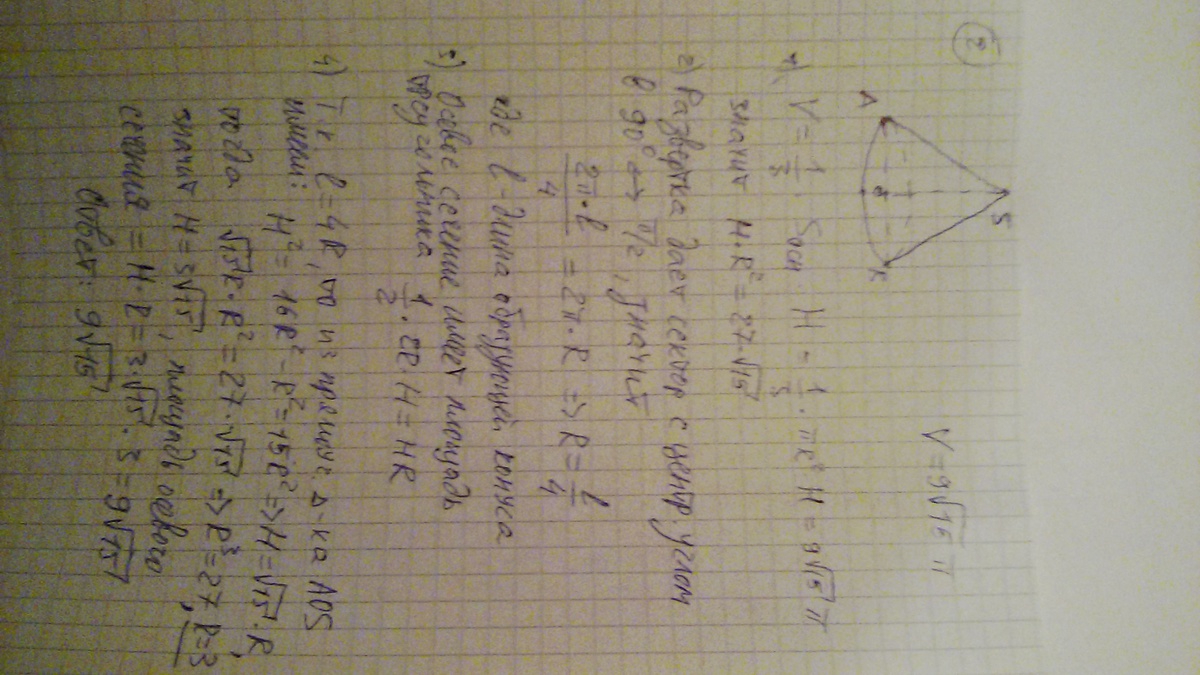 2
S
A
K
V = 9√15 π
1) V = 1/3 Sосн · H = 1/3 · πR² H = 9√15 π
значит H·R² = 27·√15
2) Развертка дает сектор с центр. углом
в 90° ↔ π/2, значит
2π·l/4 = 2π·R ⇒ R = l/4
где l - длина образующей конуса
3) Осевое сечение имеет площадь
треугольника 1/2 · 2R·H = HR
4) Т.к l = 4R, то из прямоуг. Δ-ка AOS
имеем: H² = 16R² - R² = 15R² ⇒ H = √15·R,
тогда √15R·R² = 27·√15 ⇒ R³ = 27, R=3
значит H = 3√15, площадь осевого
сечения = H·R = 3√15·3 = 9√15
Ответ: 9√15